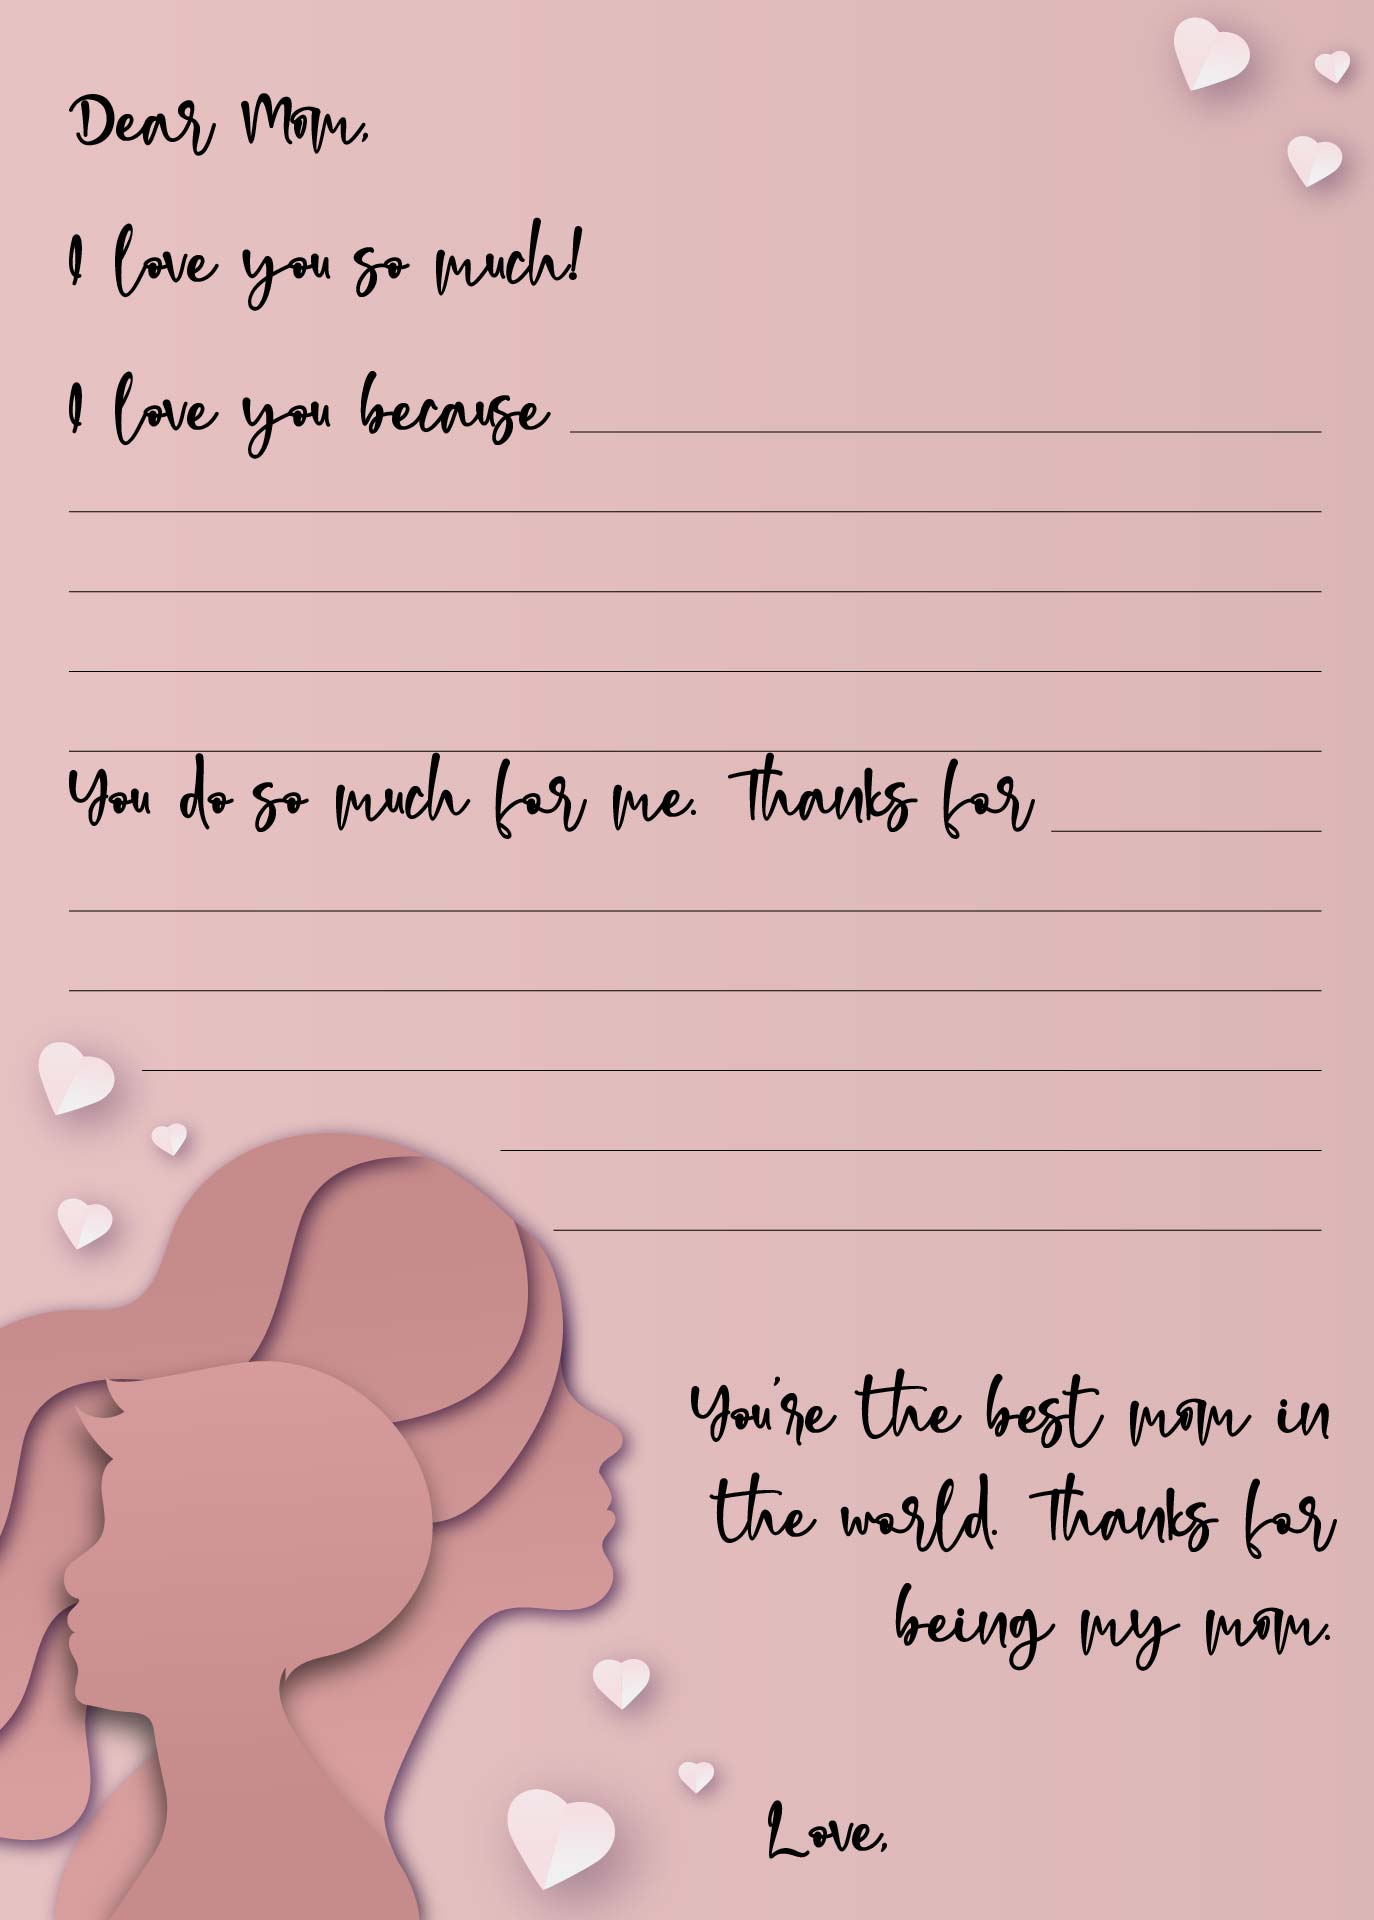 Dear Mom,
I love you so much!
I love you because
You do so much for me. Thanks for
You're the best mom in
the world. Thanks for
being my mom.
Love,